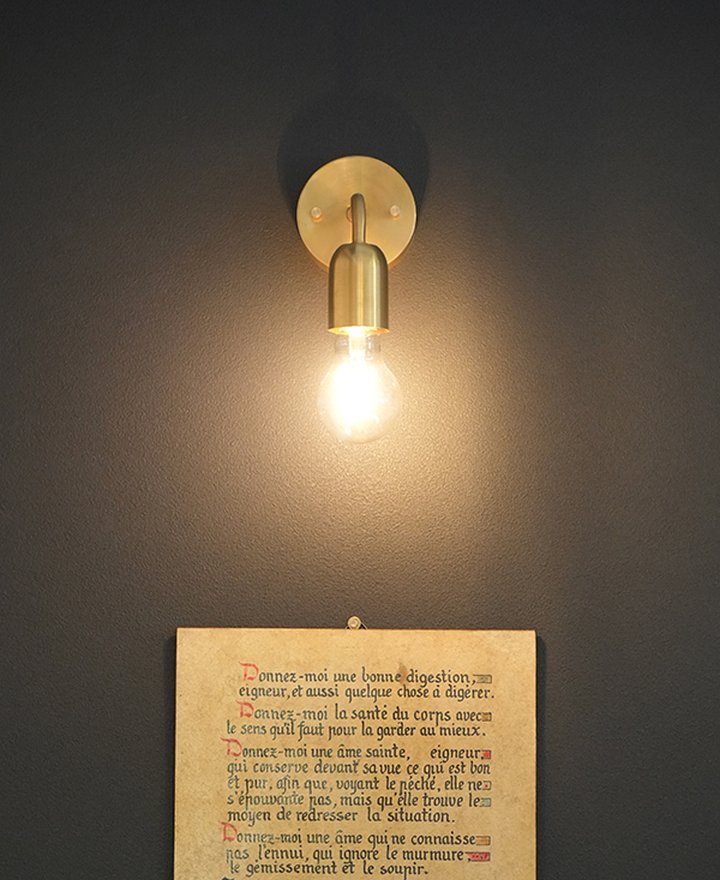 Donnez-moi une bonne digestion,
eigneur, et aussi quelque chose à digérer.
Donnez-moi la santé du corps avec
le sens qu'il faut pour la garder au mieux.
Donnez-moi une âme sainte, eigneur,
qui conserve devant sa vue ce qui est bon
et pur, afin que, voyant le péché, elle ne
s'épouvante pas, mais qu'elle trouve le
moyen de redresser la situation.
Donnez-moi une âme qui ne connaisse
pas l'ennui, qui ignore le murmure,
le gémissement et le soupir.